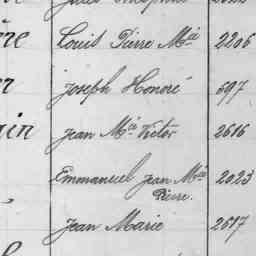 Louis Pierre Mie 2206
Joseph Honoré 697
Jean Mce Victor 2616
Emmanuel Jean Mie 2023
Pierre.
Jean Marie 2617